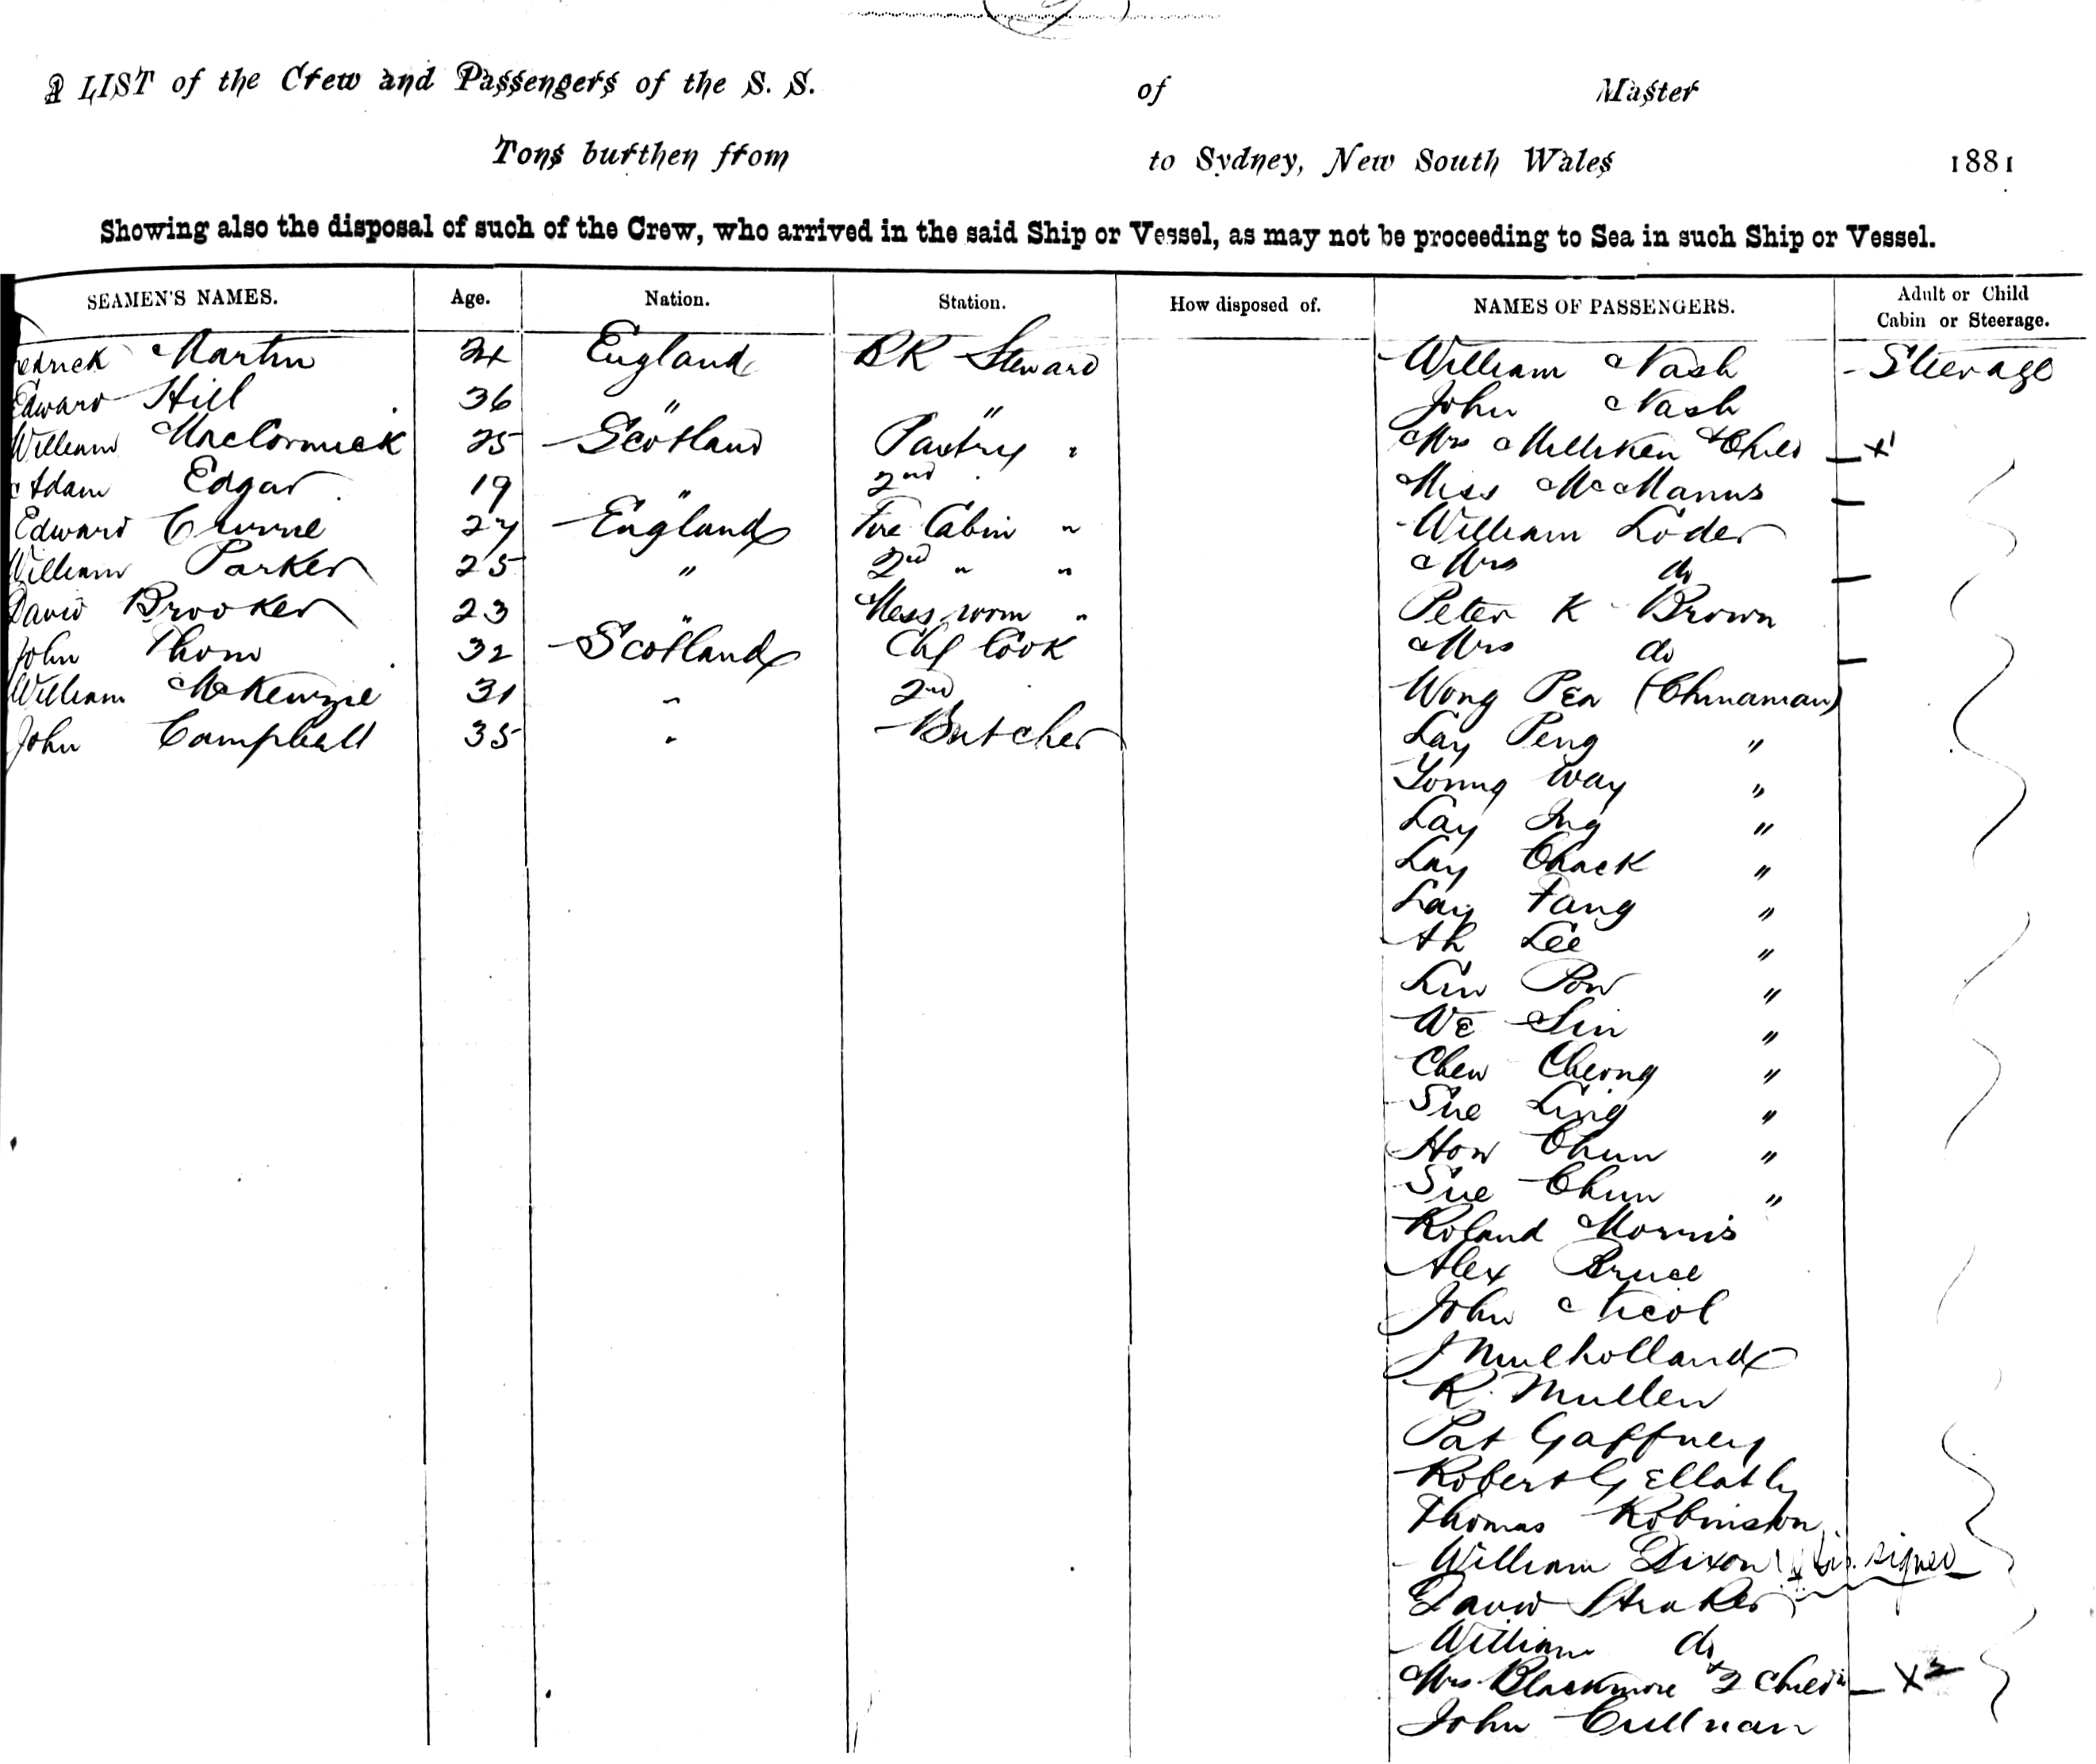 A LIST of the Crew and Passengers of the S. S. of Master
Tons burthen from to Sydney, New South Wales 1881
Showing also the disposal of such of the Crew, who arrived in the said Ship or Vessel, as may not be proceeding to Sea in such Ship or Vessel.
SEAMEN'S NAMES. Age. Nation. Station. How disposed of. NAMES OF PASSENGERS. Adult or Child Cabin or Steerage.
edrick Martin 24 England BR Steward William Nash Steerage
Edward Hill 36 " " John Nash
William MacCormick 25 Scotland Pantry " Mrs Milliken & Child x1
Adam Edgar 19 " 2nd Miss McManus
Edward 27 England Fore Cabin " William Loder
William Parker 25 " 2nd " " Mrs do
David Brooker 23 " Mess room " Peter K Brown
John Thom 32 Scotland Chf Cook Mrs do
William McKenzie 31 " 2nd Wong Pea (Chinaman)
John Campbell 35 " Butcher Lay Peng "
Young Way "
Lay Ing "
Lay Chack "
Lay Fang "
Ah Lee "
Lin Pow "
We Sin "
Chew Cheong "
Sue Ling "
How Chun "
Sue Chun "
Roland Morris
Alex Bruce
John Nicol
J Mulholland
R. Mullen
Pat Gaffney
Robert Gellatly
Thomas Robinson
William Dixon signed
David Straker
William do
Mrs Blackmore & 2 Childn x2
John Cullnan